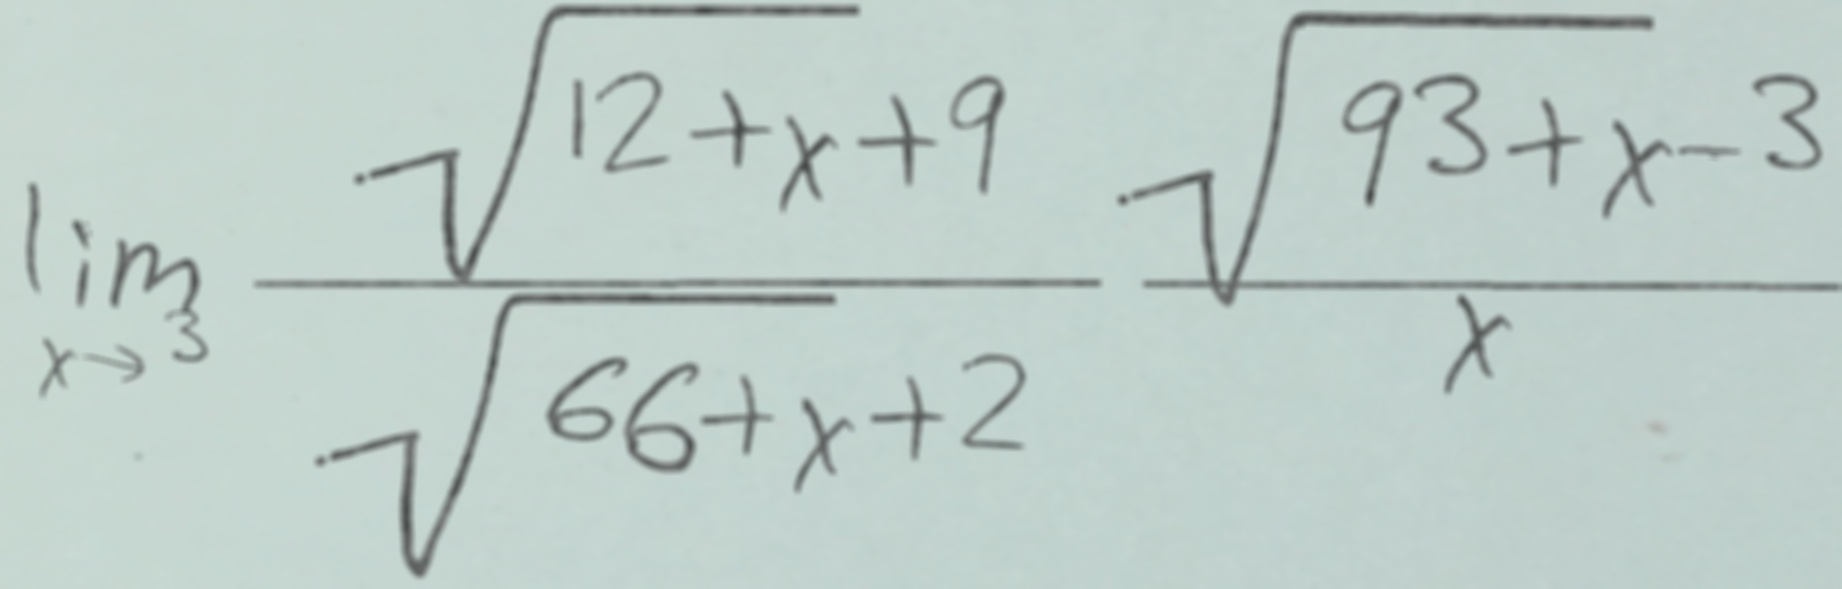 \lim_{x \to 3} \frac{\sqrt{12+x}+9}{\sqrt{66+x}+2} \frac{\sqrt{93+x}-3}{x}